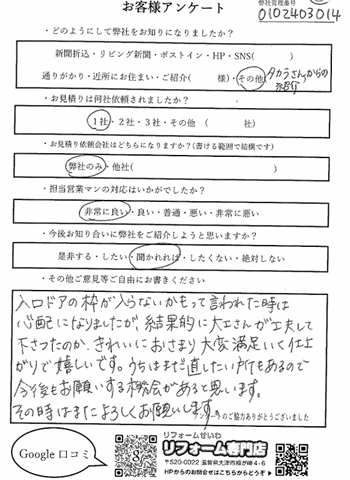 お客様アンケート
弊社管理番号
0102403014
・どのようにして弊社をお知りになりましたか？
新聞折込・リビング新聞・ポストイン・HP・SNS(　　　)
通りがかり・近所にお住まい・ご紹介(　　　様)・その他(タカラさんからの紹介
・お見積りは何社依頼されましたか？
1社・2社・3社・その他（　　　社）
・お見積り依頼会社はどちらになりますか？(書ける範囲で結構です)
弊社のみ・他社(　　　)
・担当営業マンの対応はいかがでしたか？
非常に良い・良い・普通・悪い・非常に悪い
・今後お知り合いに弊社をご紹介しようと思いますか？
是非する・したい・聞かれれば・したくない・絶対しない
・その他ご意見等ご自由にお書きください
入口ドアの枠が入らないかもって言われた時は
心配になりましたが、結果的に大工さんが工夫して
下さったのか、きれいにおさまり大変満足いく仕上
がりで嬉しいです。うちはまだ直したい所もあるので
今後もお願いする機会があると思います。
その時はまたよろしくお願いします。
アンケートのご協力ありがとうございました
Google 口コミ
リフォームせいわ
リフォーム専門店
〒520-0022 滋賀県大津市柳が崎4-6
HPからのお問合せはこちらからどうぞ